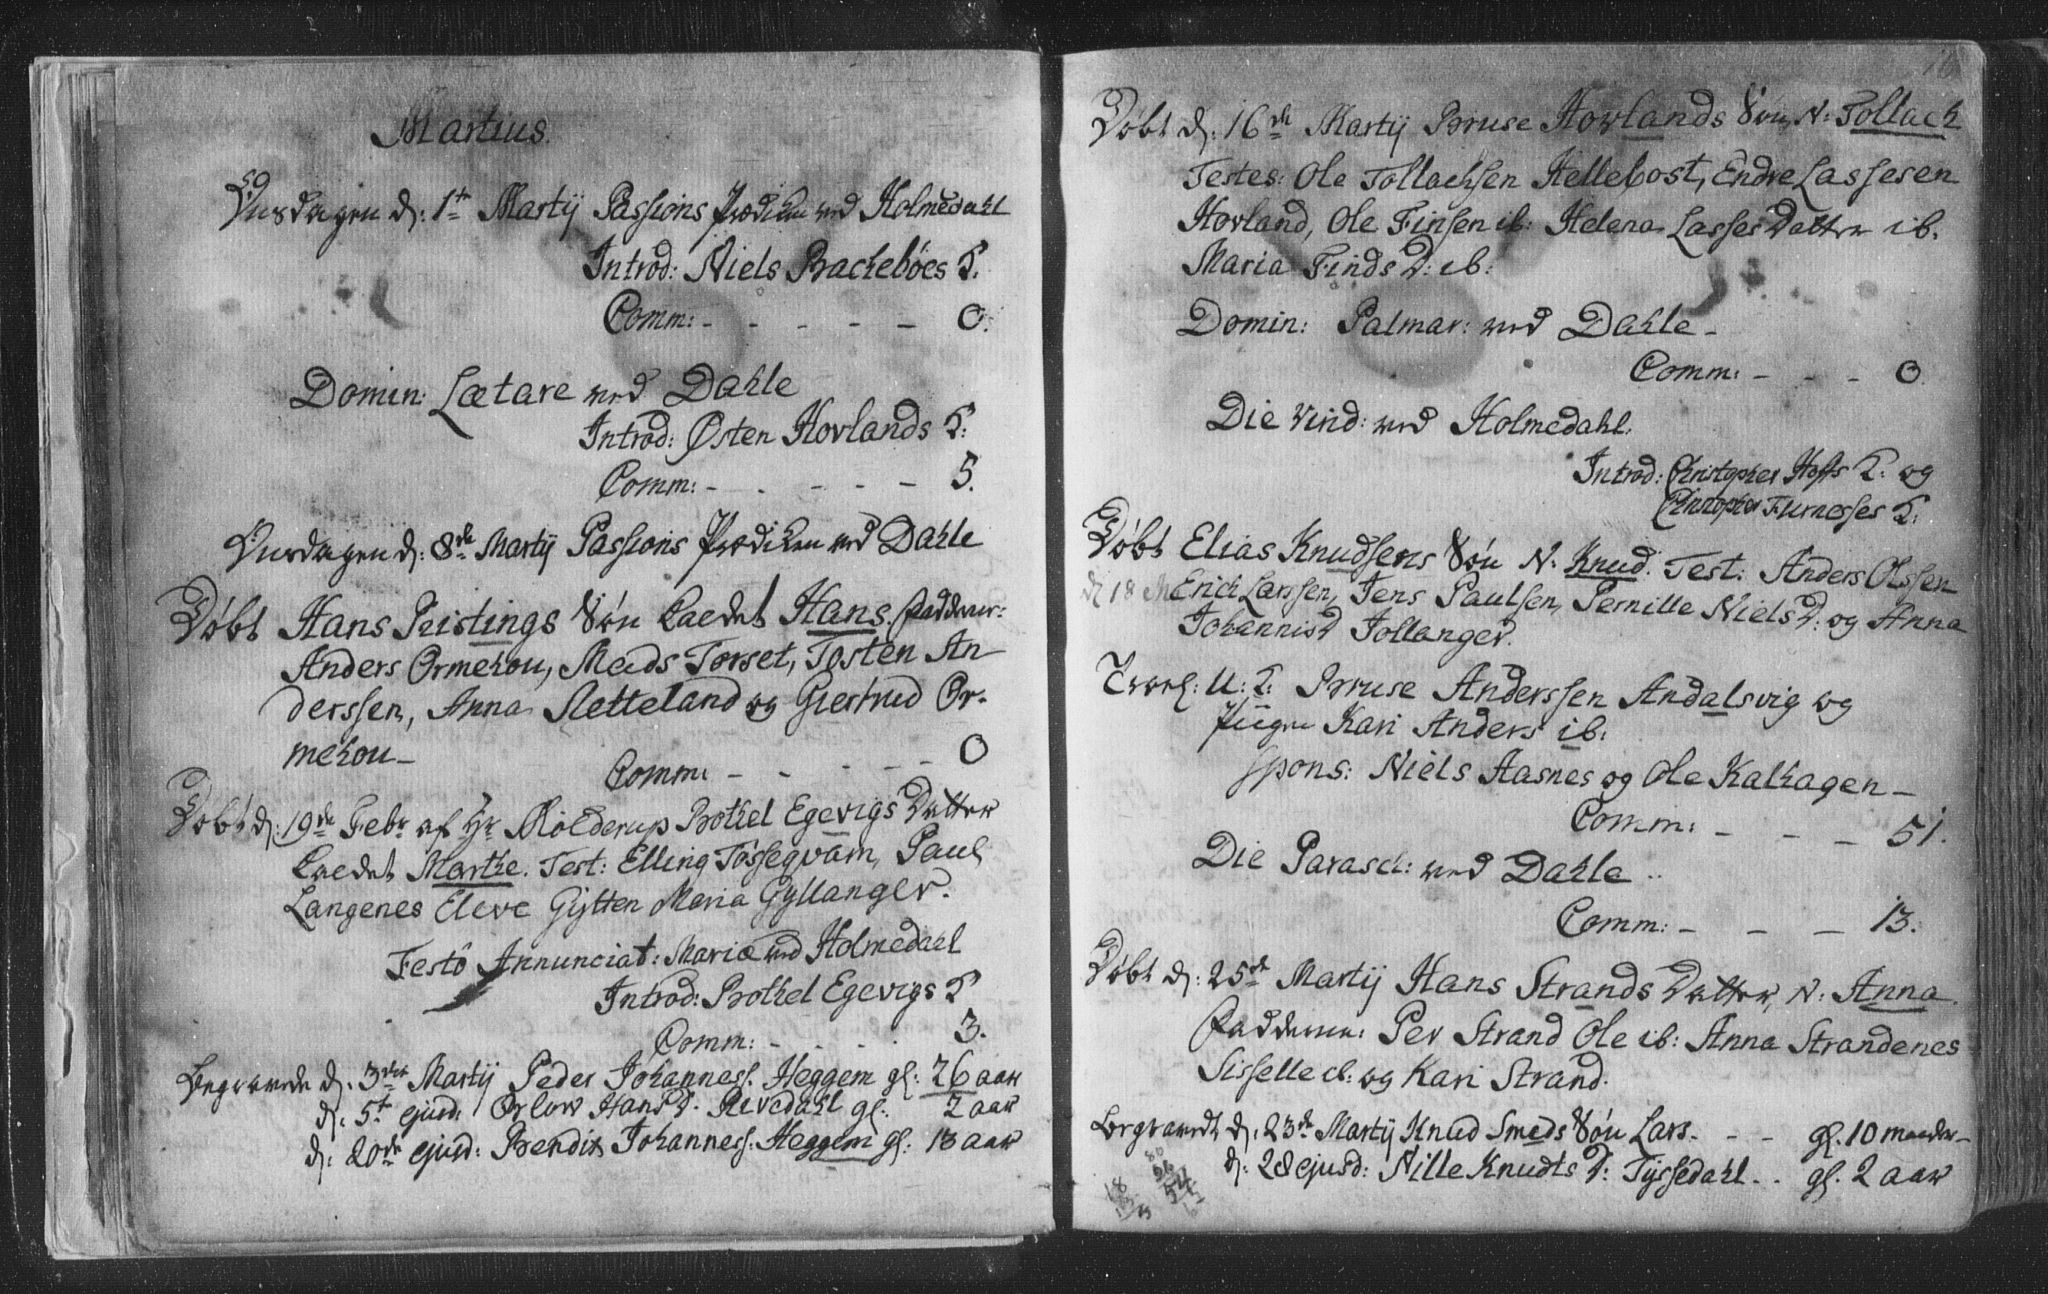 Martius.
Onsdagen d: 1te Martij Passions Prædiken ved Holmedahl
Introd: Niels Backebøes K:
Comm: - - - - - 0.
Domin: Lætare ved Dahle
Introd: Østen Hovlands K:
Comm: - - - - - 5.
Onsdagen d: 8de Martij Passions Prædiken ved Dahle
Døbt Hans Ristings Søn kaldet Hans. Fadderne:
Anders Ormehou, Mads Torset, Tosten An-
derssen, Anna Sletteland og Giertrud Or-
mehou -
Comm: - - - - - 0
Døbt d: 19de Febr af Hr Molderup Bothel Egevigs Datter
kaldet Marthe. Test: Elling Tossegvam, Paul
Langenes Eleve Gytten Maria Gyllanger.
Festo Annunciat: Mariæ ved Holmedahl
Introd: Bothel Egevigs K
Comm: - - - - 3.
Begravede d: 3die Martij Peder Johanness. Heggem gl: 26 aar
d: 5te ejusd: Orlow Hans D. Revedahl gl: 2 aar
d: 20de ejusd: Bendix Johanness. Heggem gl: 13 aar
16
Døbt d: 16de Martij Bruse Hovlands Søn, N: Tollach
Testes: Ole Tollachsen Hellebost, Endre Lassesen
Hovland, Ole Finsen ib: Helena Lasses Datter ib.
Maria Finds D: ib:
Domin: Palmar: ved Dahle -
Comm: - - - 0.
Die Virid: ved Holmedahl.
Introd: Christopher Hoffs K: og
Christopher Furnesses K:
Døbt Elias Knudsens Søn N. Knud. Test: Anders Olssen
d 18 M Erich Larssen, Jens Paulsen, Pernille Niels D: og Anna
Johannis D Jollanger.
Trol: U: K: Bruse Anderssen Andalsvig og
Pigen Kari Anders ib:
Spons: Niels Aasnes og Ole Kalhagen -
Comm: - - - 51.
Die Parasc: ved Dahle ..
Comm: - - - 13.
Døbt d: 25de Martij Hans Strands Datter, N: Anna.
Fadderne: Per Strand Ole ib: Anna Strandenes
Sisselle ib: og Kari Strand.
Begravedt d: 23de Martij Knud Smeds Søn Lars. - - gl. 10 maader -
d: 28 ejusd: Nille Knudts D: Tyssedahl .. gl. 2 aar